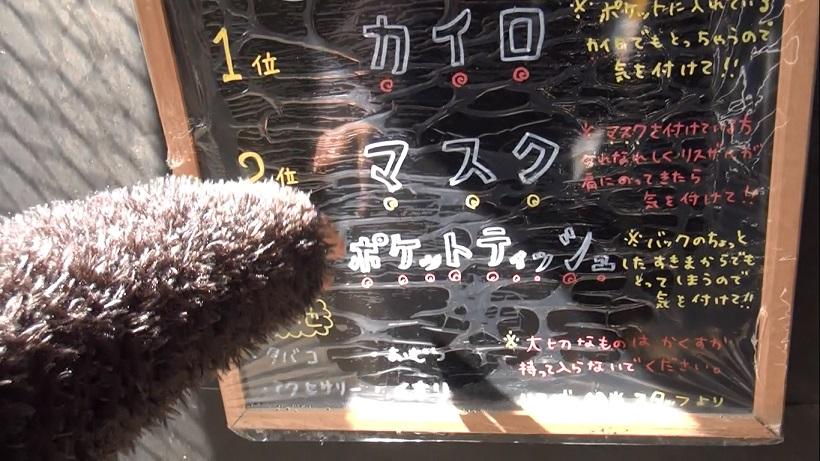 ※ポケットに入れている
1位 カイロ カイロでもとっちゃうので
気を付けて!!
※マスクを付けている方
2位 マスク なれなれしくリスザルが
肩にのってきたら
気を付けて!!
ポケットティッシュ ※バックのちょっと
したすきまからでも
とってしまうので
気を付けて!!
・タバコ ・おむつ
・アクセサリー
※大切なものはかくすか
持って入らないでください。
スタッフより